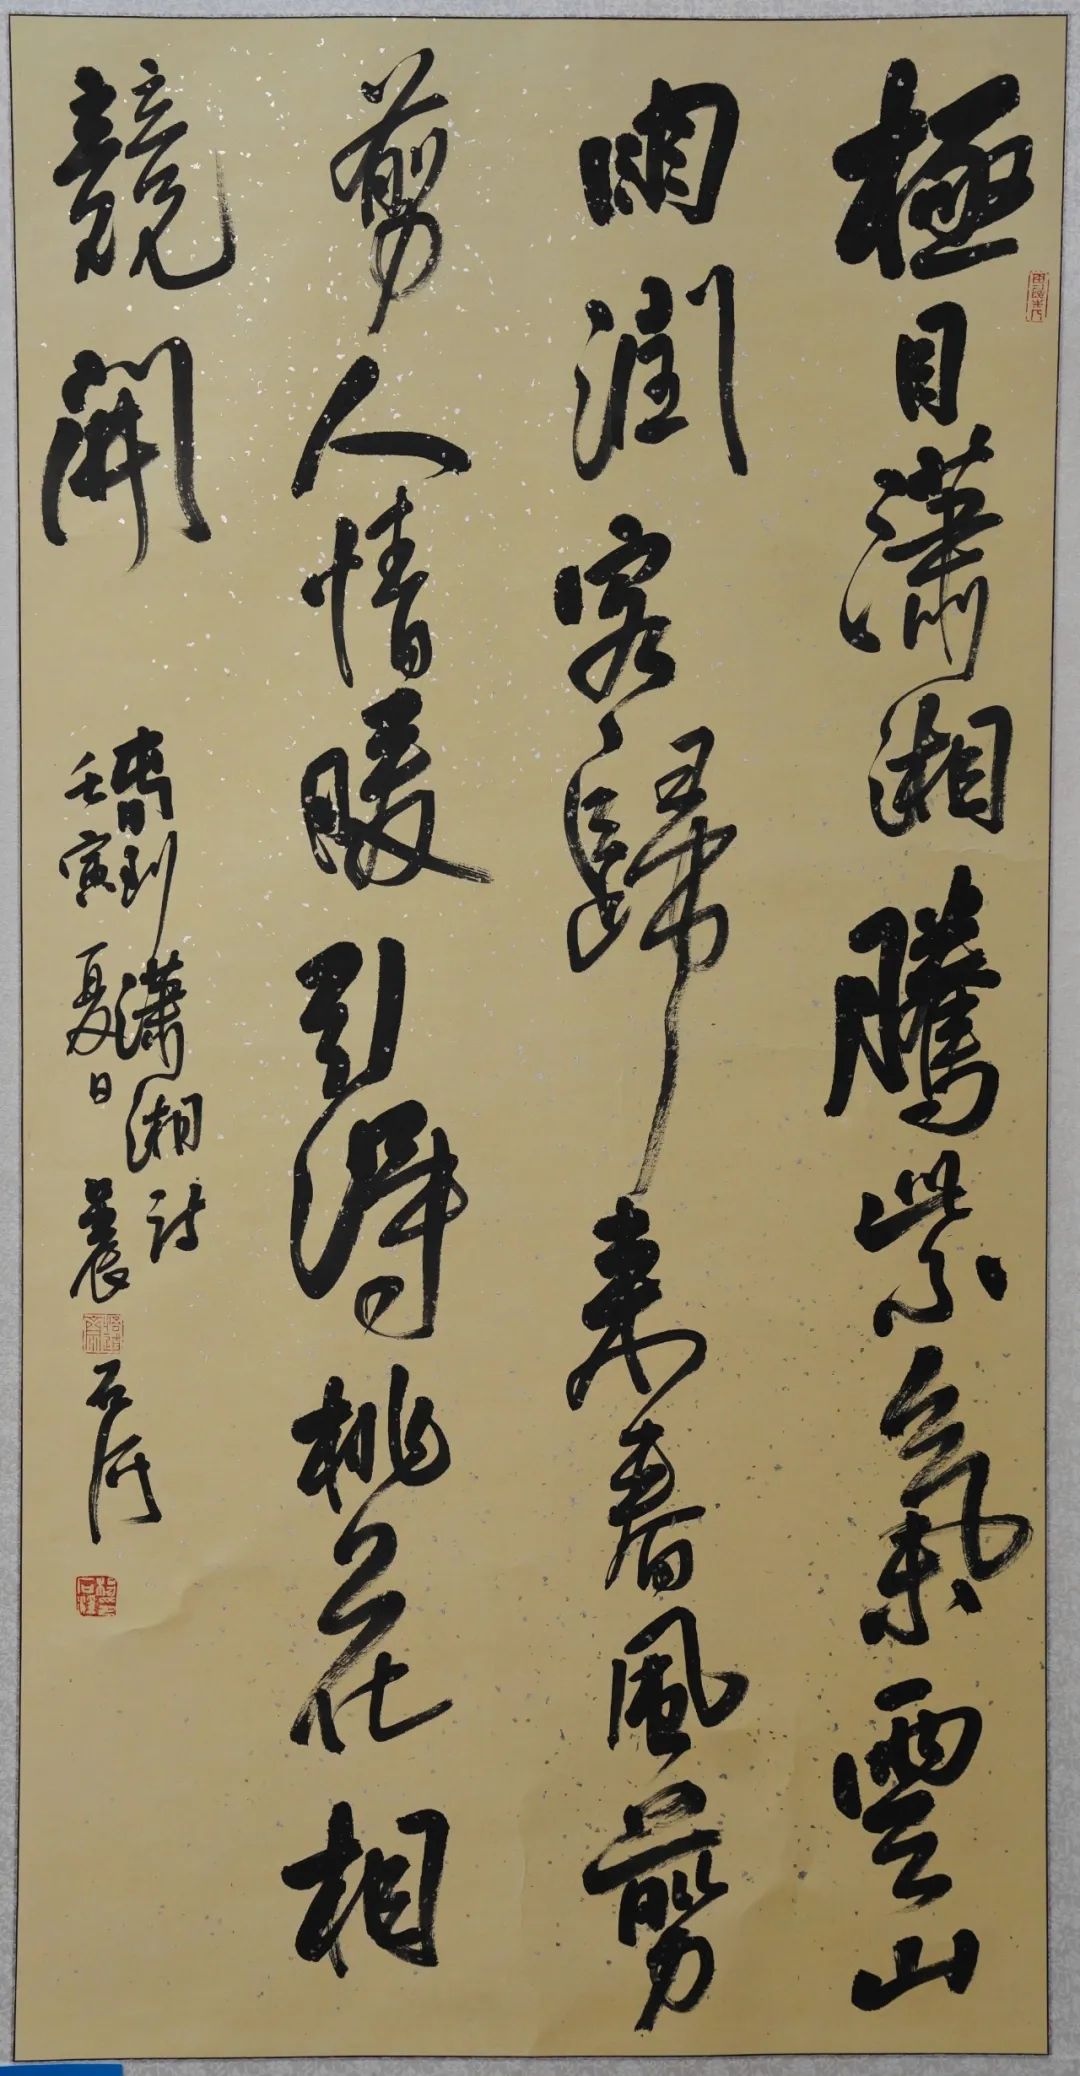 極目瀟湘騰紫氣雲山
雨潤客歸來春風剪
剪人情暖引得桃花相
競開
瀟湘詩
壬寅夏日
石河